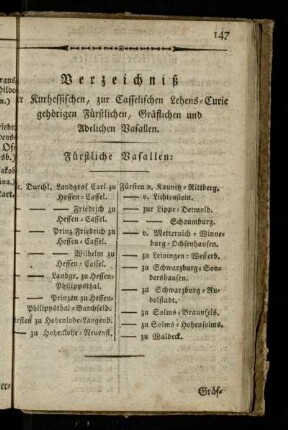 147
Verzeichniß
er Kurhessischen, zur Casselischen Lehens-Curie
gehörigen Fürstlichen, Gräflichen und
Adelichen Vasallen.
Fürstliche Vasallen:
e. Durchl. Landgraf Carl zu
Hessen-Cassel.
— — Friedrich zu
Hessen-Cassel.
— — Prinz Friedrich zu
Hessen-Cassel.
— — Wilhelm zu
Hessen-Cassel.
— — Landgr. zu Hessen-
Philippsthal.
— Prinzen zu Hessen-
Philippsthal-Barchfeld.
ürsten zu Hohenlohe-Langenb.
— zu Hohenlohe-Neuenst.
Fürsten v. Kaunitz-Rittberg.
— v. Lichtenstein.
— zur Lippe-Detmold.
— — Schaumburg.
— v. Metternich-Winne-
burg-Ochsenhausen.
— zu Leiningen-Westerb.
— zu Schwarzburg-Son-
dershausen.
— zu Schwarzburg-Ru-
dolstadt.
— zu Solms-Braunfels.
— zu Solms-Hohensolms.
— zu Waldeck.
Gräf-